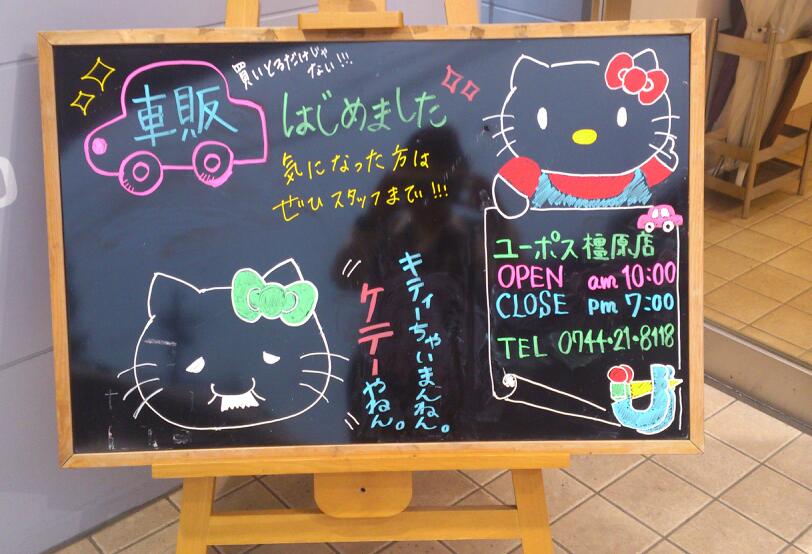 買いとるだけじゃ
ない!!!
車販
はじめました
気になった方は
ぜひスタッフまで!!!
キティーちゃいまんねん。
ケテーやねん。
ユーポス橿原店
OPEN am 10:00
CLOSE pm 7:00
TEL 0744・21・8118